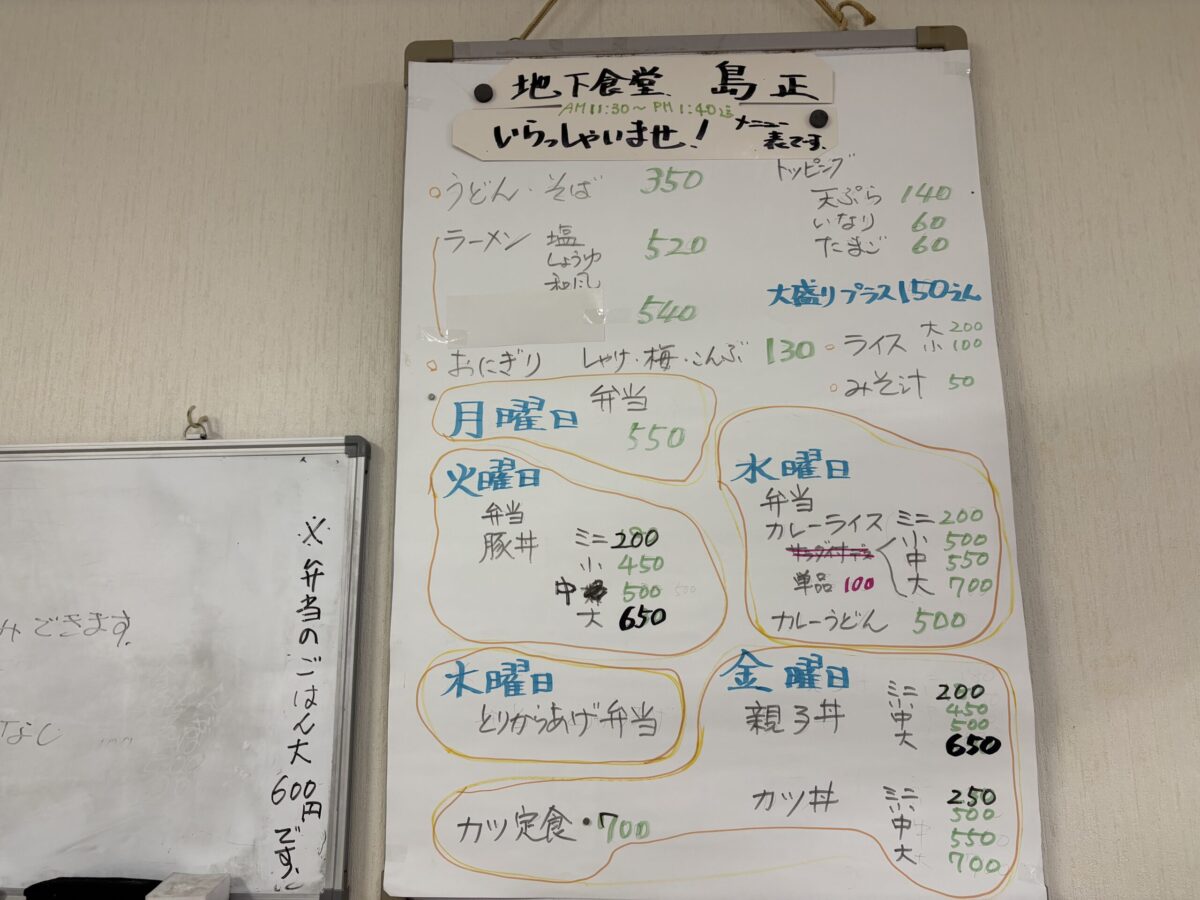 地下食堂 島正
AM11:30～PM1:40迄
いらっしゃいませ! メニュー表です。
うどん・そば 350
ラーメン 塩 520
しょうゆ
和風
540
おにぎり しゃけ・梅・こんぶ 130
トッピング
天ぷら 140
いなり 60
たまご 60
大盛りプラス150えん
ライス 大 200
小 100
みそ汁 50
月曜日 弁当
550
火曜日
弁当
豚丼 ミニ 200
小 450
中 500
大 650
水曜日
弁当
カレーライス ミニ 200
小 500
中 550
単品 100 大 700
カレーうどん 500
木曜日
とりからあげ弁当
金曜日
親子丼 ミニ 200
小 450
中 500
大 650
カツ丼 ミニ 250
小 500
中 550
大 700
カツ定食・700
みできます。
なし
※弁当のごはん大600円です。